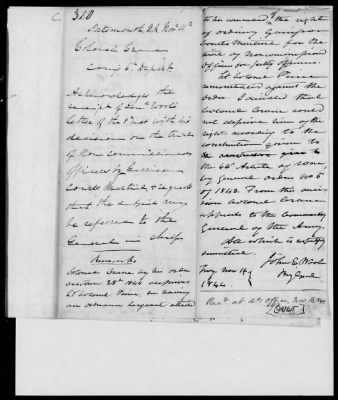 C 320
Portsmouth, N.H. Nov. 11th
Colonel Crane
Comg 5th Depart.
Acknowledges the
receipt of Genl. Wools
letter of the inst with his
decision on the trials
of Non commissioned
officers by Garrison
Courts Martial, & requests
that the subject may
be referred to the
General in Chief
Remarks
Colonel Crane by his order
28th 1844
Lt Colonel Paine, he having
an ordnance Sergeant
to his command of the right
of ordering Garrison
Courts Martial for the
trial of Noncommissioned
Officers for petty offences.
Lt. Colonel Paine
remonstrated against the
order. I decided that
Colonel Crane could
not deprive him of the
right according to the
construction given to
the 66th Article of War,
by General orders No 5
of 1843. From this decision
Colonel Crane
appeals to the Commanding
General of the Army.
All which is respectfully
submitted.
John E. Wool
Brg Genl.
Troy, Nov 14
1844
Recd. at A.G. Office, Nov. 16, 1844
Over